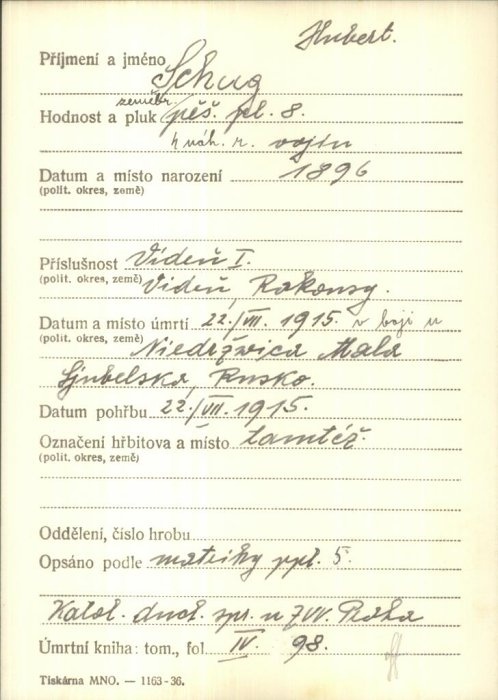 Hubert.
Příjmení a jméno Schug
zeměbr.
Hodnost a pluk pěš. pl. 8.
náh. r. vojín
Datum a místo narození 1896
(polit. okres, země)
Příslušnost Vídeň I.
(polit. okres, země) Vídeň Rakousy.
Datum a místo úmrtí 22./VII. 1915. v boji u
(polit. okres, země) Niedržwica Mala
Ljubelska, Rusko.
Datum pohřbu 22./VII. 1915.
Označení hřbitova a místo tamtéž.
(polit. okres, země)
Oddělení, číslo hrobu
Opsáno podle matriky ppl. 5.
Katol. duch. spr. u ZVV. Praha
Úmrtní kniha: tom., fol. IV. 98.
Tiskárna MNO. — 1163-36.